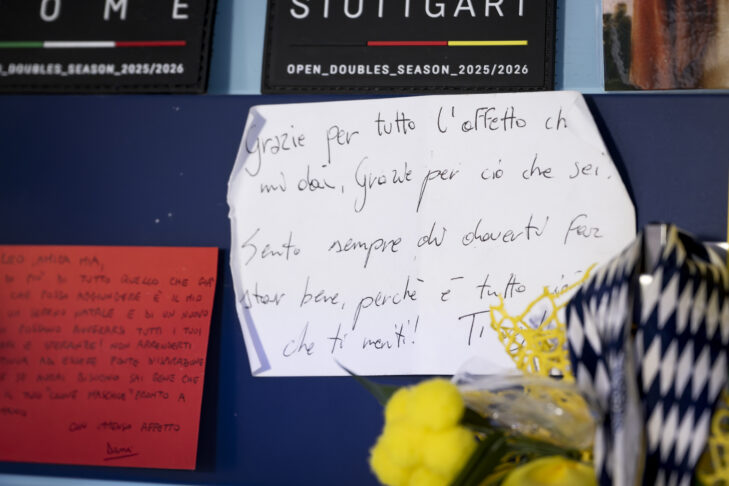 OME
STUTTGART
N_DOUBLES_SEASON_2025/2026
OPEN_DOUBLES_SEASON_2025/2026
Grazie per tutto l'affetto ch
mi dai, Grazie per ciò che sei.
Sento sempre di doverti far
star bene, perchè è tutto ciò
che ti meriti!
LEO AMICA MIA,
DI PIÙ DI TUTTO QUELLO CHE
CHE POSSA AGGIUNGERE È IL MIO
UN SERENO NATALE E DI UN NUOVO
POSSANO AVVERARSI TUTTI I TUOI
E SPERANZE! NON ARRENDERTI
AD ESSERE FONTE D'ISPIRAZIONE
SE AVRAI BISOGNO SAI BENE CHE
IL TUO "CLONE MASCHIO" PRONTO A
CON IMMENSO AFFETTO